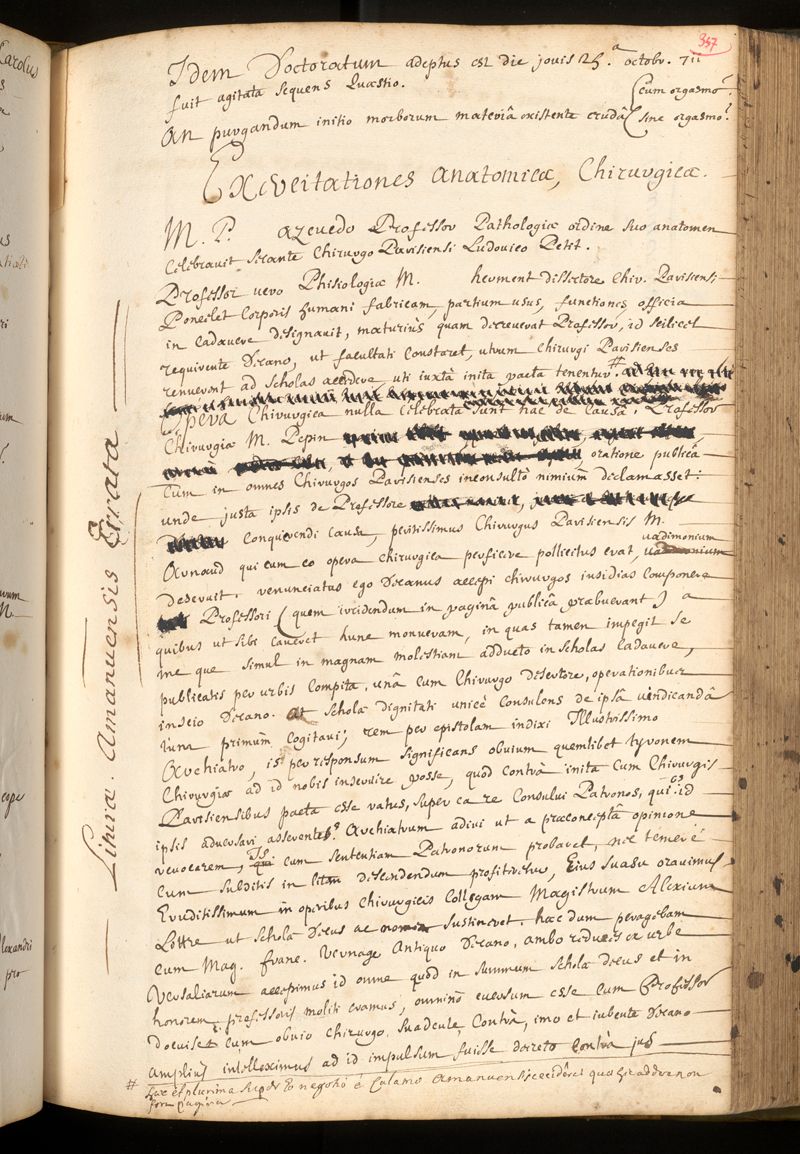 357
Idem Doctoratum adeptus est die jovis 25.a octobr. 711
fuit agitata sequens Quæstio.
An purgandum initio morborum materiâ existente crudâ
cum orgasmo?
sine orgasmo?
Exercitationes anatomicæ, Chirurgicæ.
M. P. azevedo Professor Pathologiæ ordine suo anatomen
Celebravit secante Chirurgo Parisiensi Ludovico Petit.
Professor vero Phisiologiæ M. hermment dissectore Chir. Parisiensi
Poncelet Corporis humani fabricam, partium usus, functiones officia
in Cadavere designavit, maturius quam decreverat Professor, id scilicet
requirente Decano, ut facultati Constaret, utrum Chirurgi Parisienses
renuerent ad Scholas accedere, uti iuxtà inita pacta tenentur. #
opera Chirurgica nulla Celebrata sunt hac de Causa, Professor
Chirurgiæ M. Pepin
oratione publicâ
Cum in omnes Chirurgos Parisienses inconsultò nimium declamasset:
unde justa ipsis de Professore
Conquirendi Causa, peritissimus Chirurgus Parisiensis M.
Arnaud qui cum eo opera chirurgica perficere pollicitus erat, vadimonium
deseruit. renunciatus ego Decanus accepi chirurgos insidias Componere
Professori (quem irridendum in paginâ publicâ præbuerant) a
quibus ut sibi Caveret hunc monueram, in quas tamen impegit se
me que simul in magnam molestiam adducto in Scholas Cadavere,
publicatis per urbis Compita, unâ cum Chirurgo desertore, operationibus
inscio Decano. At Scholæ dignitati unicè Consulens de ipsâ vindicandâ
tunc primùm Cogitavi; rem per epistolam indixi Illustrissimo
Archiatro, is per responsum significans obvium quemlibet tyronem
Chirurgiæ ad id nobis inservire posse, quod Contrà inita Cum Chirurgis
Parisiensibus pacta esse ratus, super ea re Consului Patronos, qui id
ipsis adversari asserentes. Archiatrum adivi ut a præconceptâ opinione
revocarem, Is cum sententiam Patronorum probaret, nec temerè
Cum subditis in litem descendendum profiteretur, Eius suasu oravimus
Eruditissimum in operibus Chirurgicis Collegam Magistrum Alexium
Lottre ut Schola Decus ac sustineret. hæc dum peragebam
cum Mag. franc. Vernage Antiquo Decano, ambo reduces ex urbe
Versaliarum accepimus id omne quod in summum Scholæ decus et in
honorem professoris moliti eramus, omninò eversum esse Cum Professor
docuisset cum obvio Chirurgo, suadente Contrà, imo et iubente Decano
ampliùs intelleximus ad id impulsum fuisse decreto Contrà jus
# hæc et plurima super eo negotio è Calamo amanuensis exciderunt quæ hic addere non
fert pagina
Lituræ. Amanuensis Errata